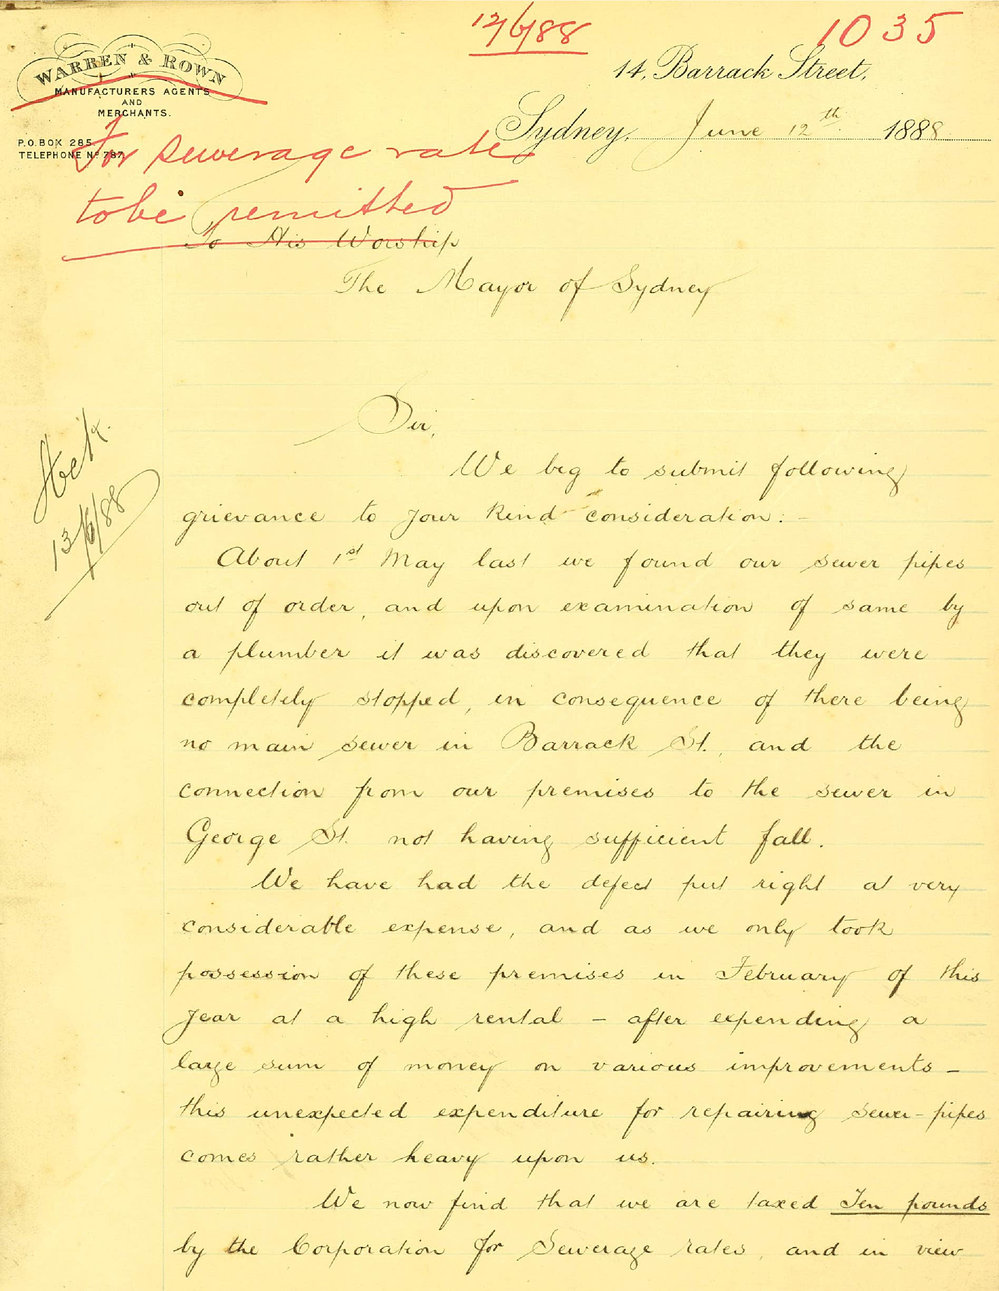 12/6/88
1035
WARREN & ROWN
MANUFACTURERS AGENTS
AND
MERCHANTS.
P.O. BOX 285.
TELEPHONE No 787.
14, Barrack Street,
Sydney, June 12th 1888
For sewerage rate
to be remitted
To His Worship
The Mayor of Sydney
Sir,
We beg to submit following
grievance to your kind consideration: -
About 1st May last we found our sewer pipes
out of order, and upon examination of same by
a plumber it was discovered that they were
completely stopped, in consequence of there being
no main sewer in Barrack St., and the
connection from our premises to the sewer in
George St. not having sufficient fall.
We have had the defect put right at very
considerable expense, and as we only took
possession of these premises in February of this
year at a high rental – after expending a
large sum of money on various improvements –
this unexpected expenditure for repairing sewer-pipes
comes rather heavy upon us.
We now find that we are taxed Ten pounds
by the Corporation for Sewerage rates, and in view
13/6/88